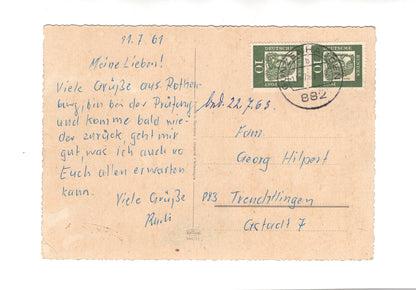 11.7.61
Meine Lieben!
Viele Grüße aus Rothen-
burg, bin bei der Prüfung
und komme bald wie-
der zurück, geht mir
gut, was ich auch von
Euch allen erwarten
kann.
Viele Grüße
Rudi
10 DEUTSCHE
10 DEUTSCHE
882
22.7.63.
Fam.
Georg Hilpert
883 Treuchtlingen
Gstadt 7